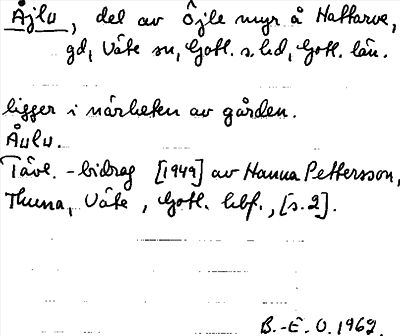 Åjlu, del av Öjle myr å Hattarve,
gd, Väte sn, Gotl. s. hd, Gotl. län.
ligger i närheten av gården.
Åulu.
Tävl.-bidrag [1949] av Hanna Pettersson,
Thuna, Väte, Gotl. hbf., [s.2].
B.-E. O. 1962.